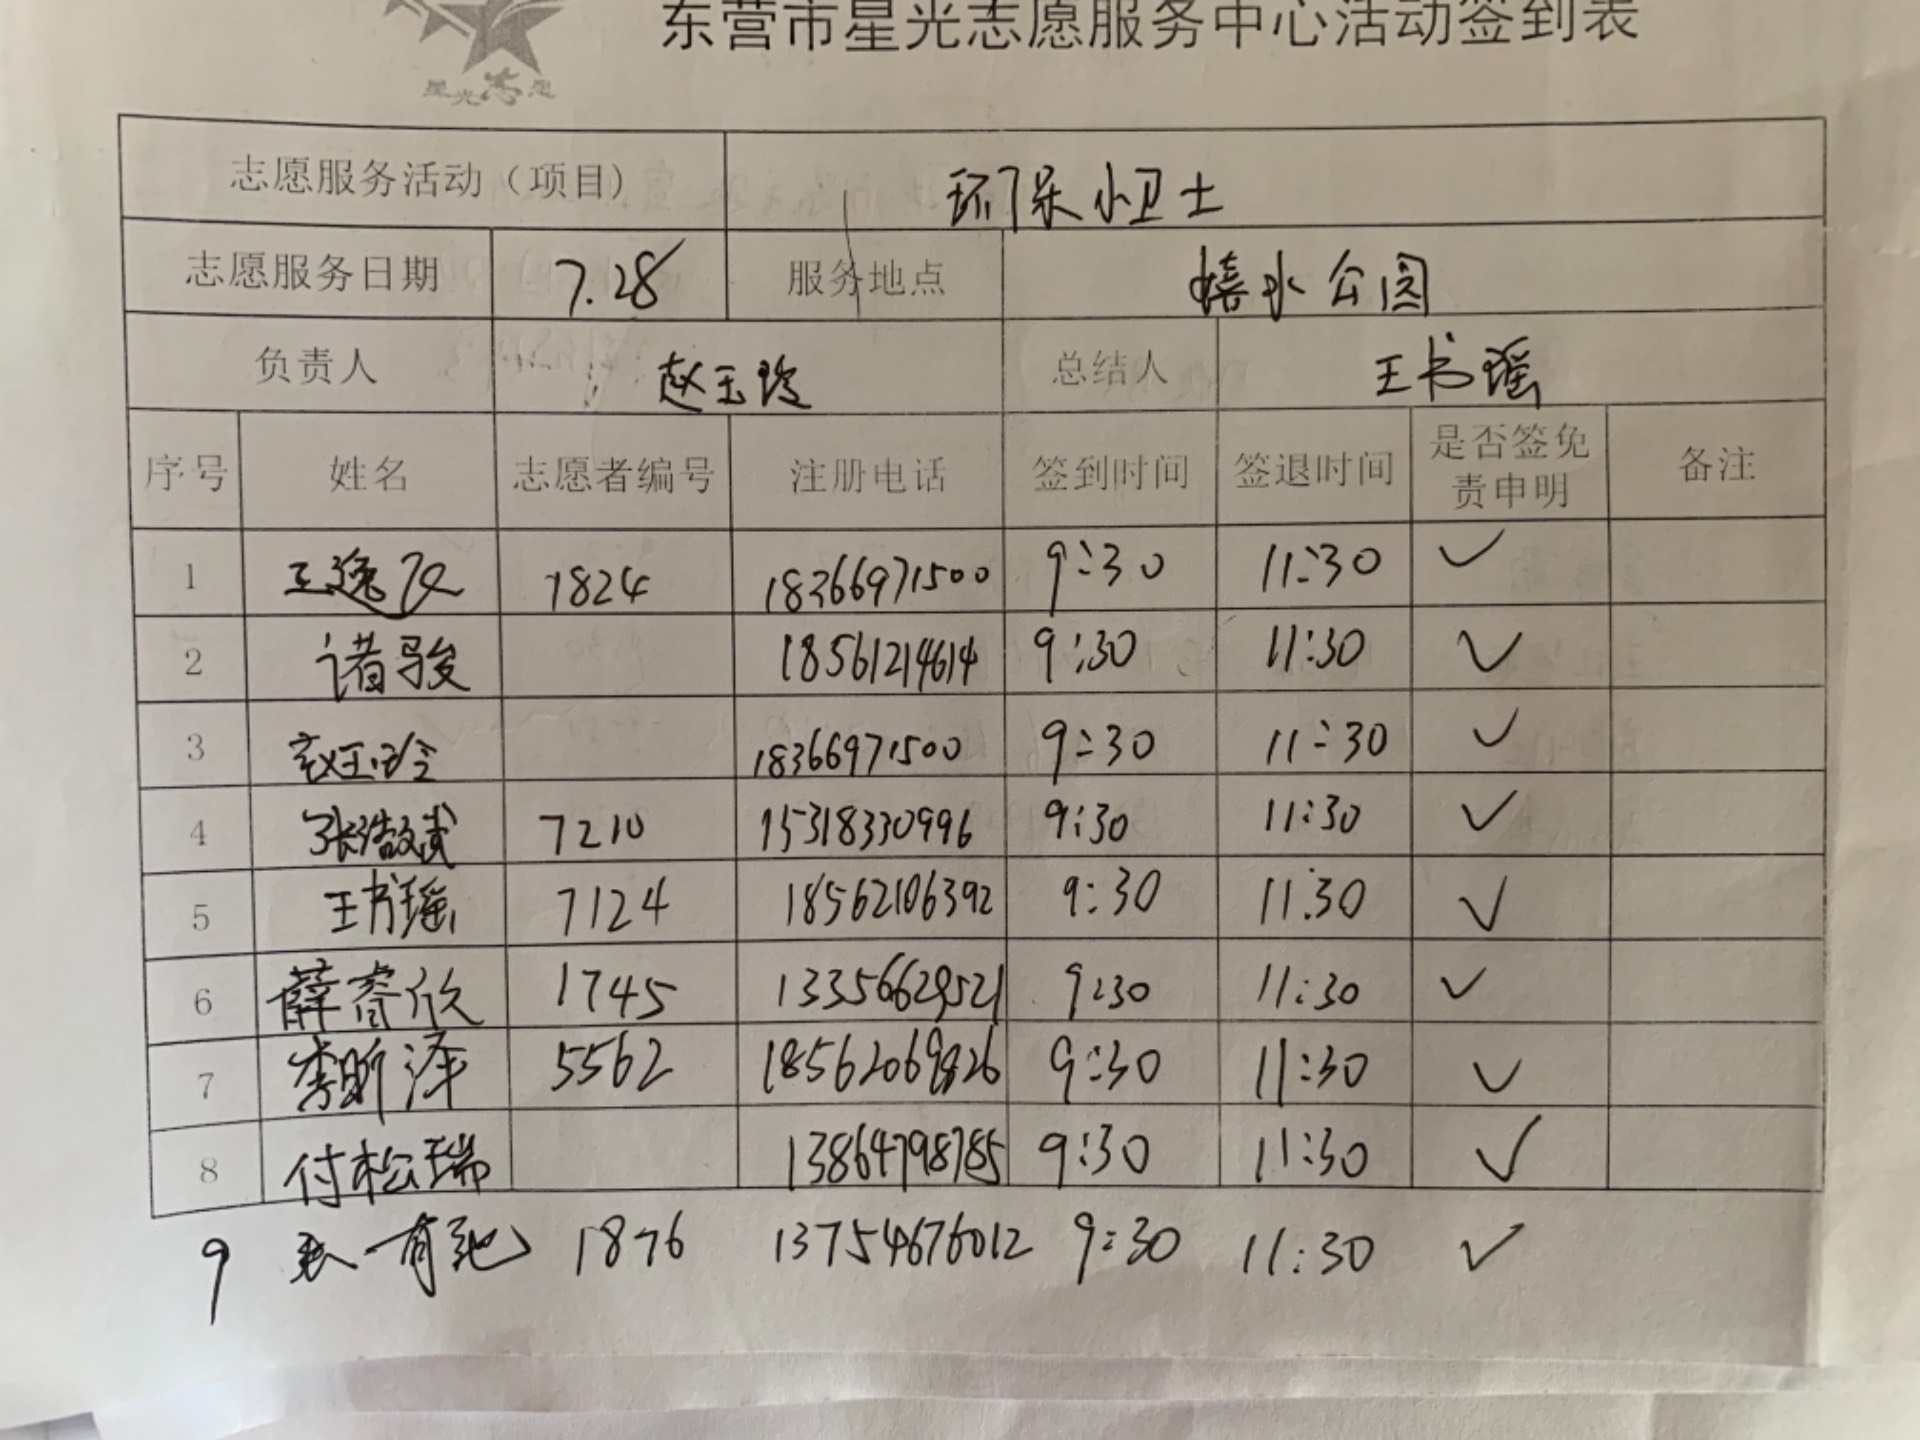 东营市星光志愿服务中心活动签到表
星光志愿
志愿服务活动（项目） 环保小卫士
志愿服务日期 7.28 服务地点 嬉水公园
负责人 赵玉玲 总结人 王书瑶
序号 姓名 志愿者编号 注册电话 签到时间 签退时间 是否签免责申明 备注
1 王逸 1824 18366971500 9:30 11:30 ✓
2 诸骏 18561214614 9:30 11:30 ✓
3 赵玉玲 18366971500 9:30 11:30 ✓
4 张皓斌 7210 15318330996 9:30 11:30 ✓
5 王书瑶 7124 18562106392 9:30 11:30 ✓
6 薛睿欣 1745 13356629521 9:30 11:30 ✓
7 李昕泽 5562 9:30 11:30 ✓
8 付松瑞 13864798785 9:30 11:30 ✓
9 1876 13754676012 9:30 11:30 ✓